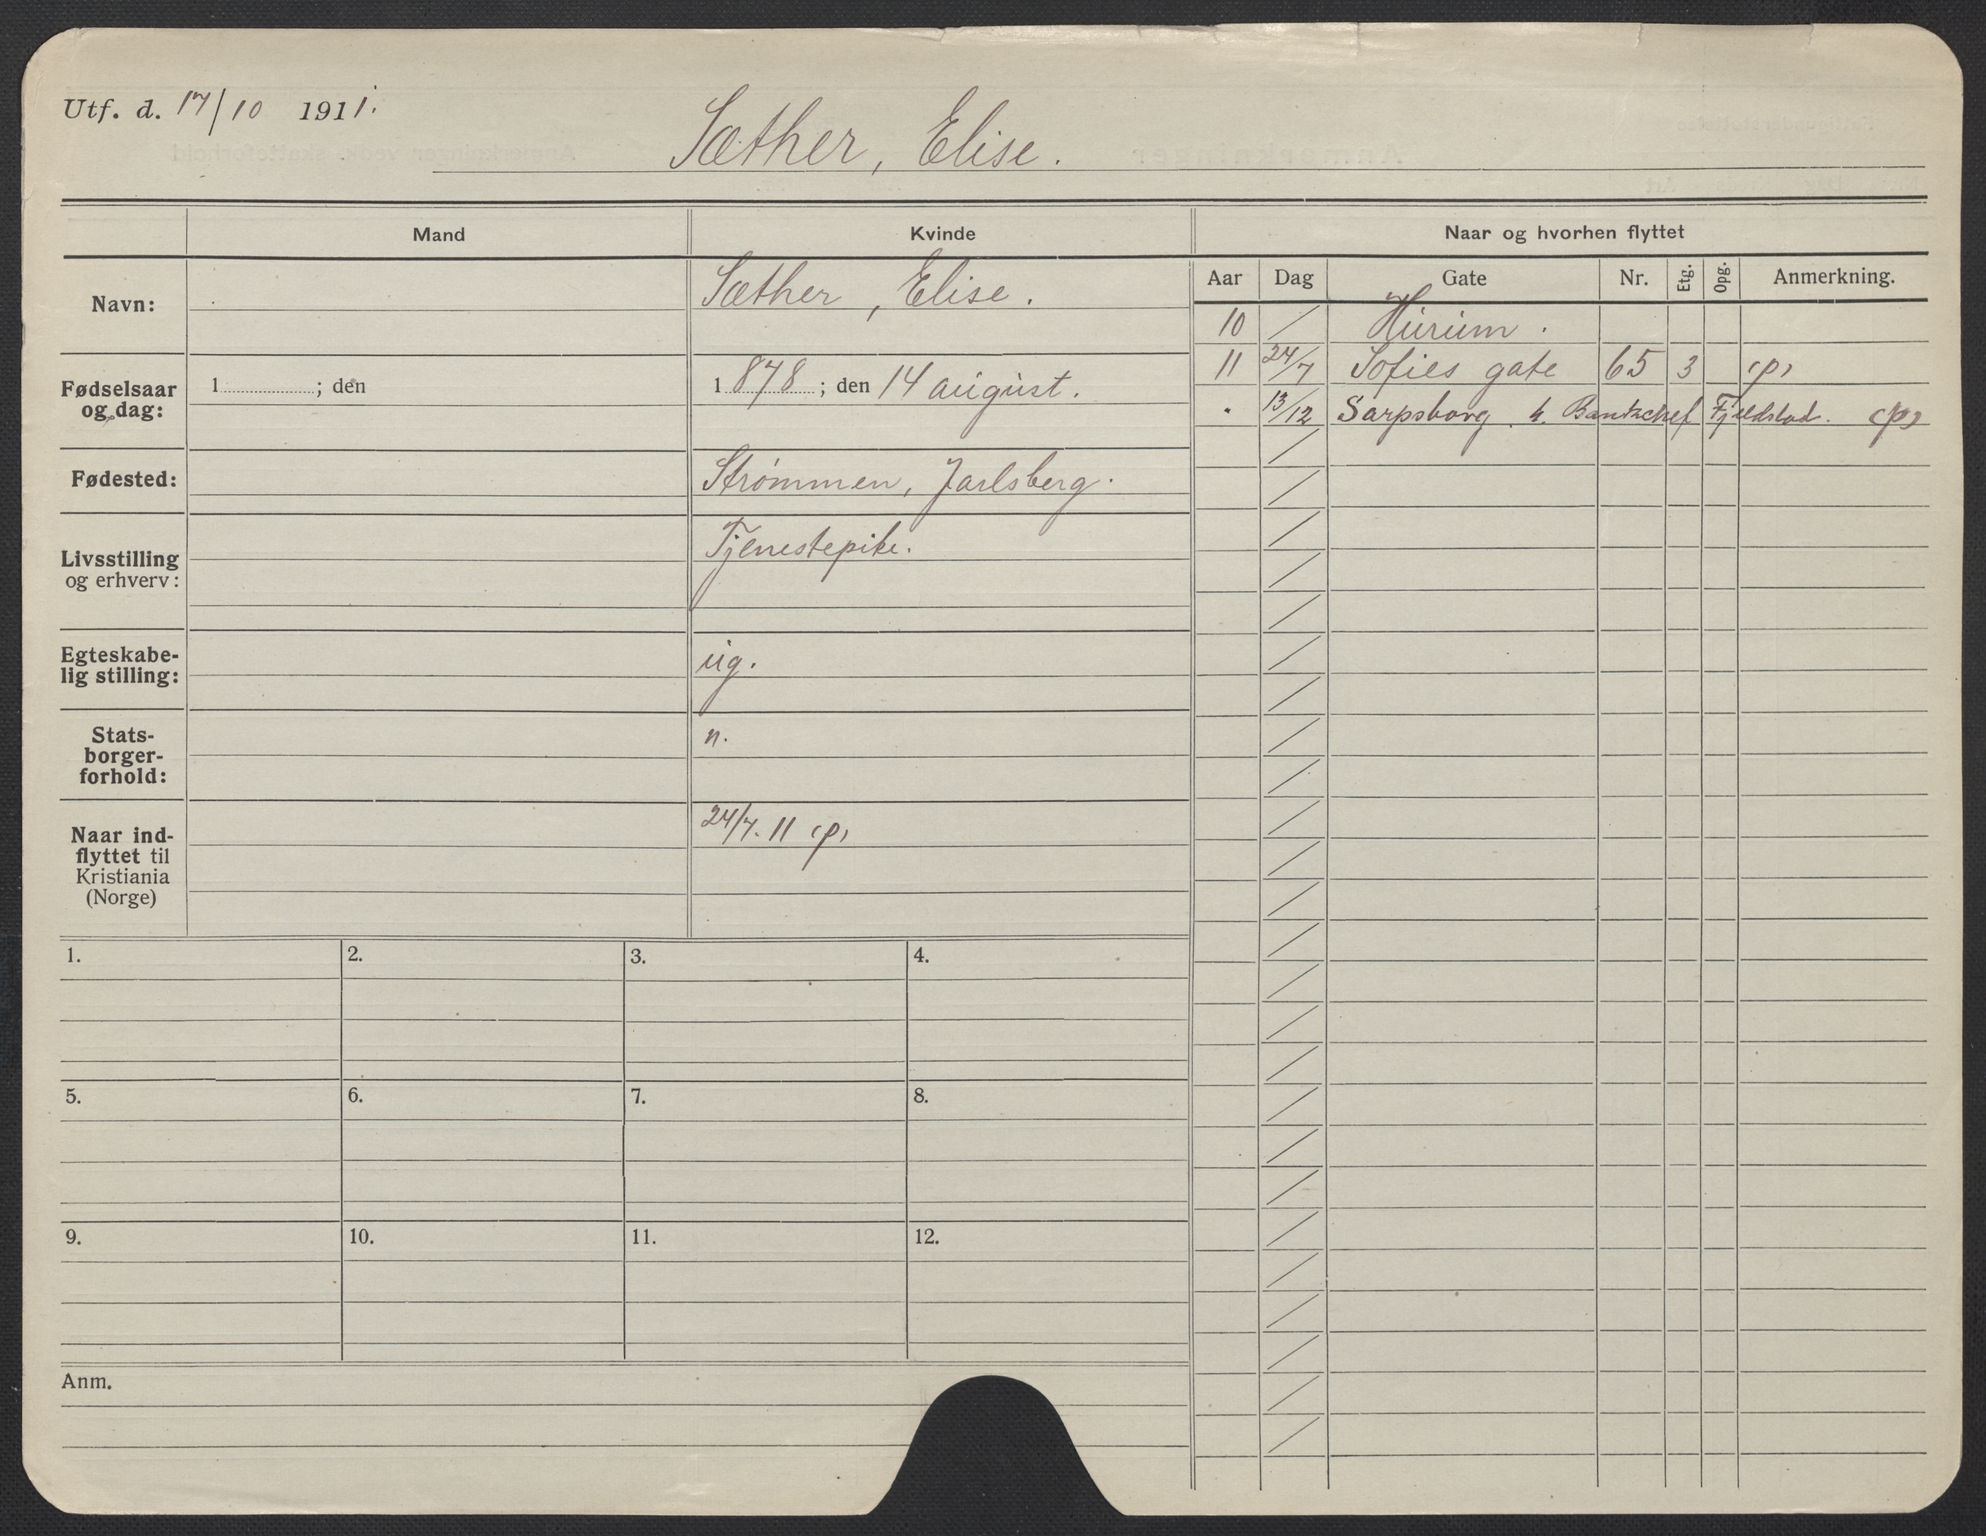 Utf. d. 17/10 1911.
Sæther, Elise.
Mand
Kvinde
Naar og hvorhen flyttet
Aar Dag Gate Nr. Etg. Opg. Anmerkning.
Navn:
Sæther, Elise.
Fødselsaar og dag:
1 ; den
1 878 ; den 14 august.
Fødested:
Strømmen, Jarlsberg.
Livsstilling og erhverv:
Tjenestepike.
Egteskabe-
lig stilling:
ug.
Stats-
borger-
forhold:
n.
Naar ind-
flyttet til
Kristiania
(Norge)
24/7. 11 (p)
10 Hurum.
11 24/7 Sofies gate 65 3 (p)
" 13/12 Sarpsborg h. Bankchef Fjeldstad. (p)
1. 2. 3. 4.
5. 6. 7. 8.
9. 10. 11. 12.
Anm.